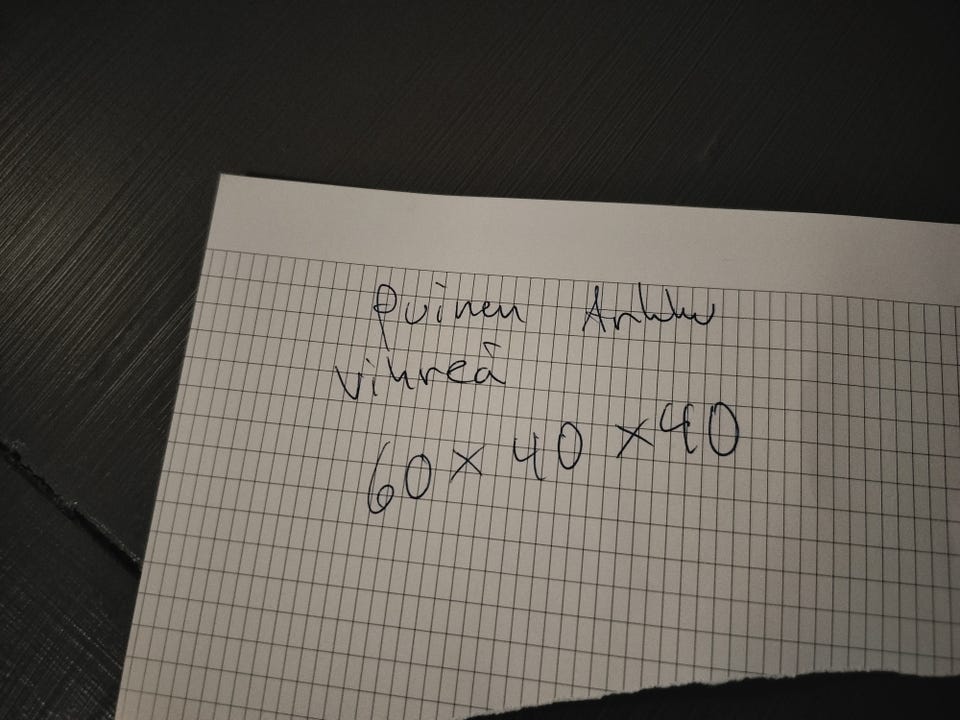 Puinen Arkku
vihreä
60 x 40 x 40